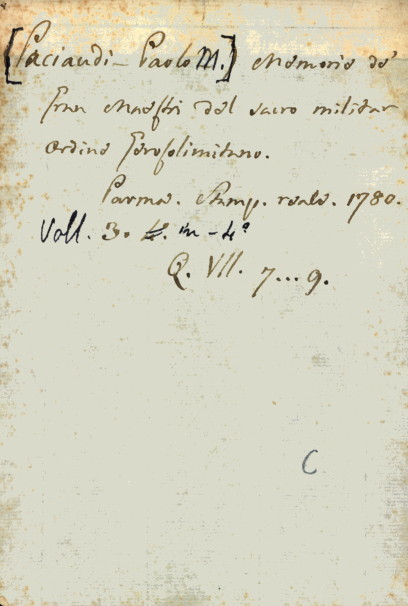 [Paciaudi - Paolo M.] Memorie de'
Gran Maestri del sacro militar
ordine Gerosolimitano.
Parma. Stamp. reale. 1780.
Voll. 3. in-4º
Q. VII. 7...9.
C